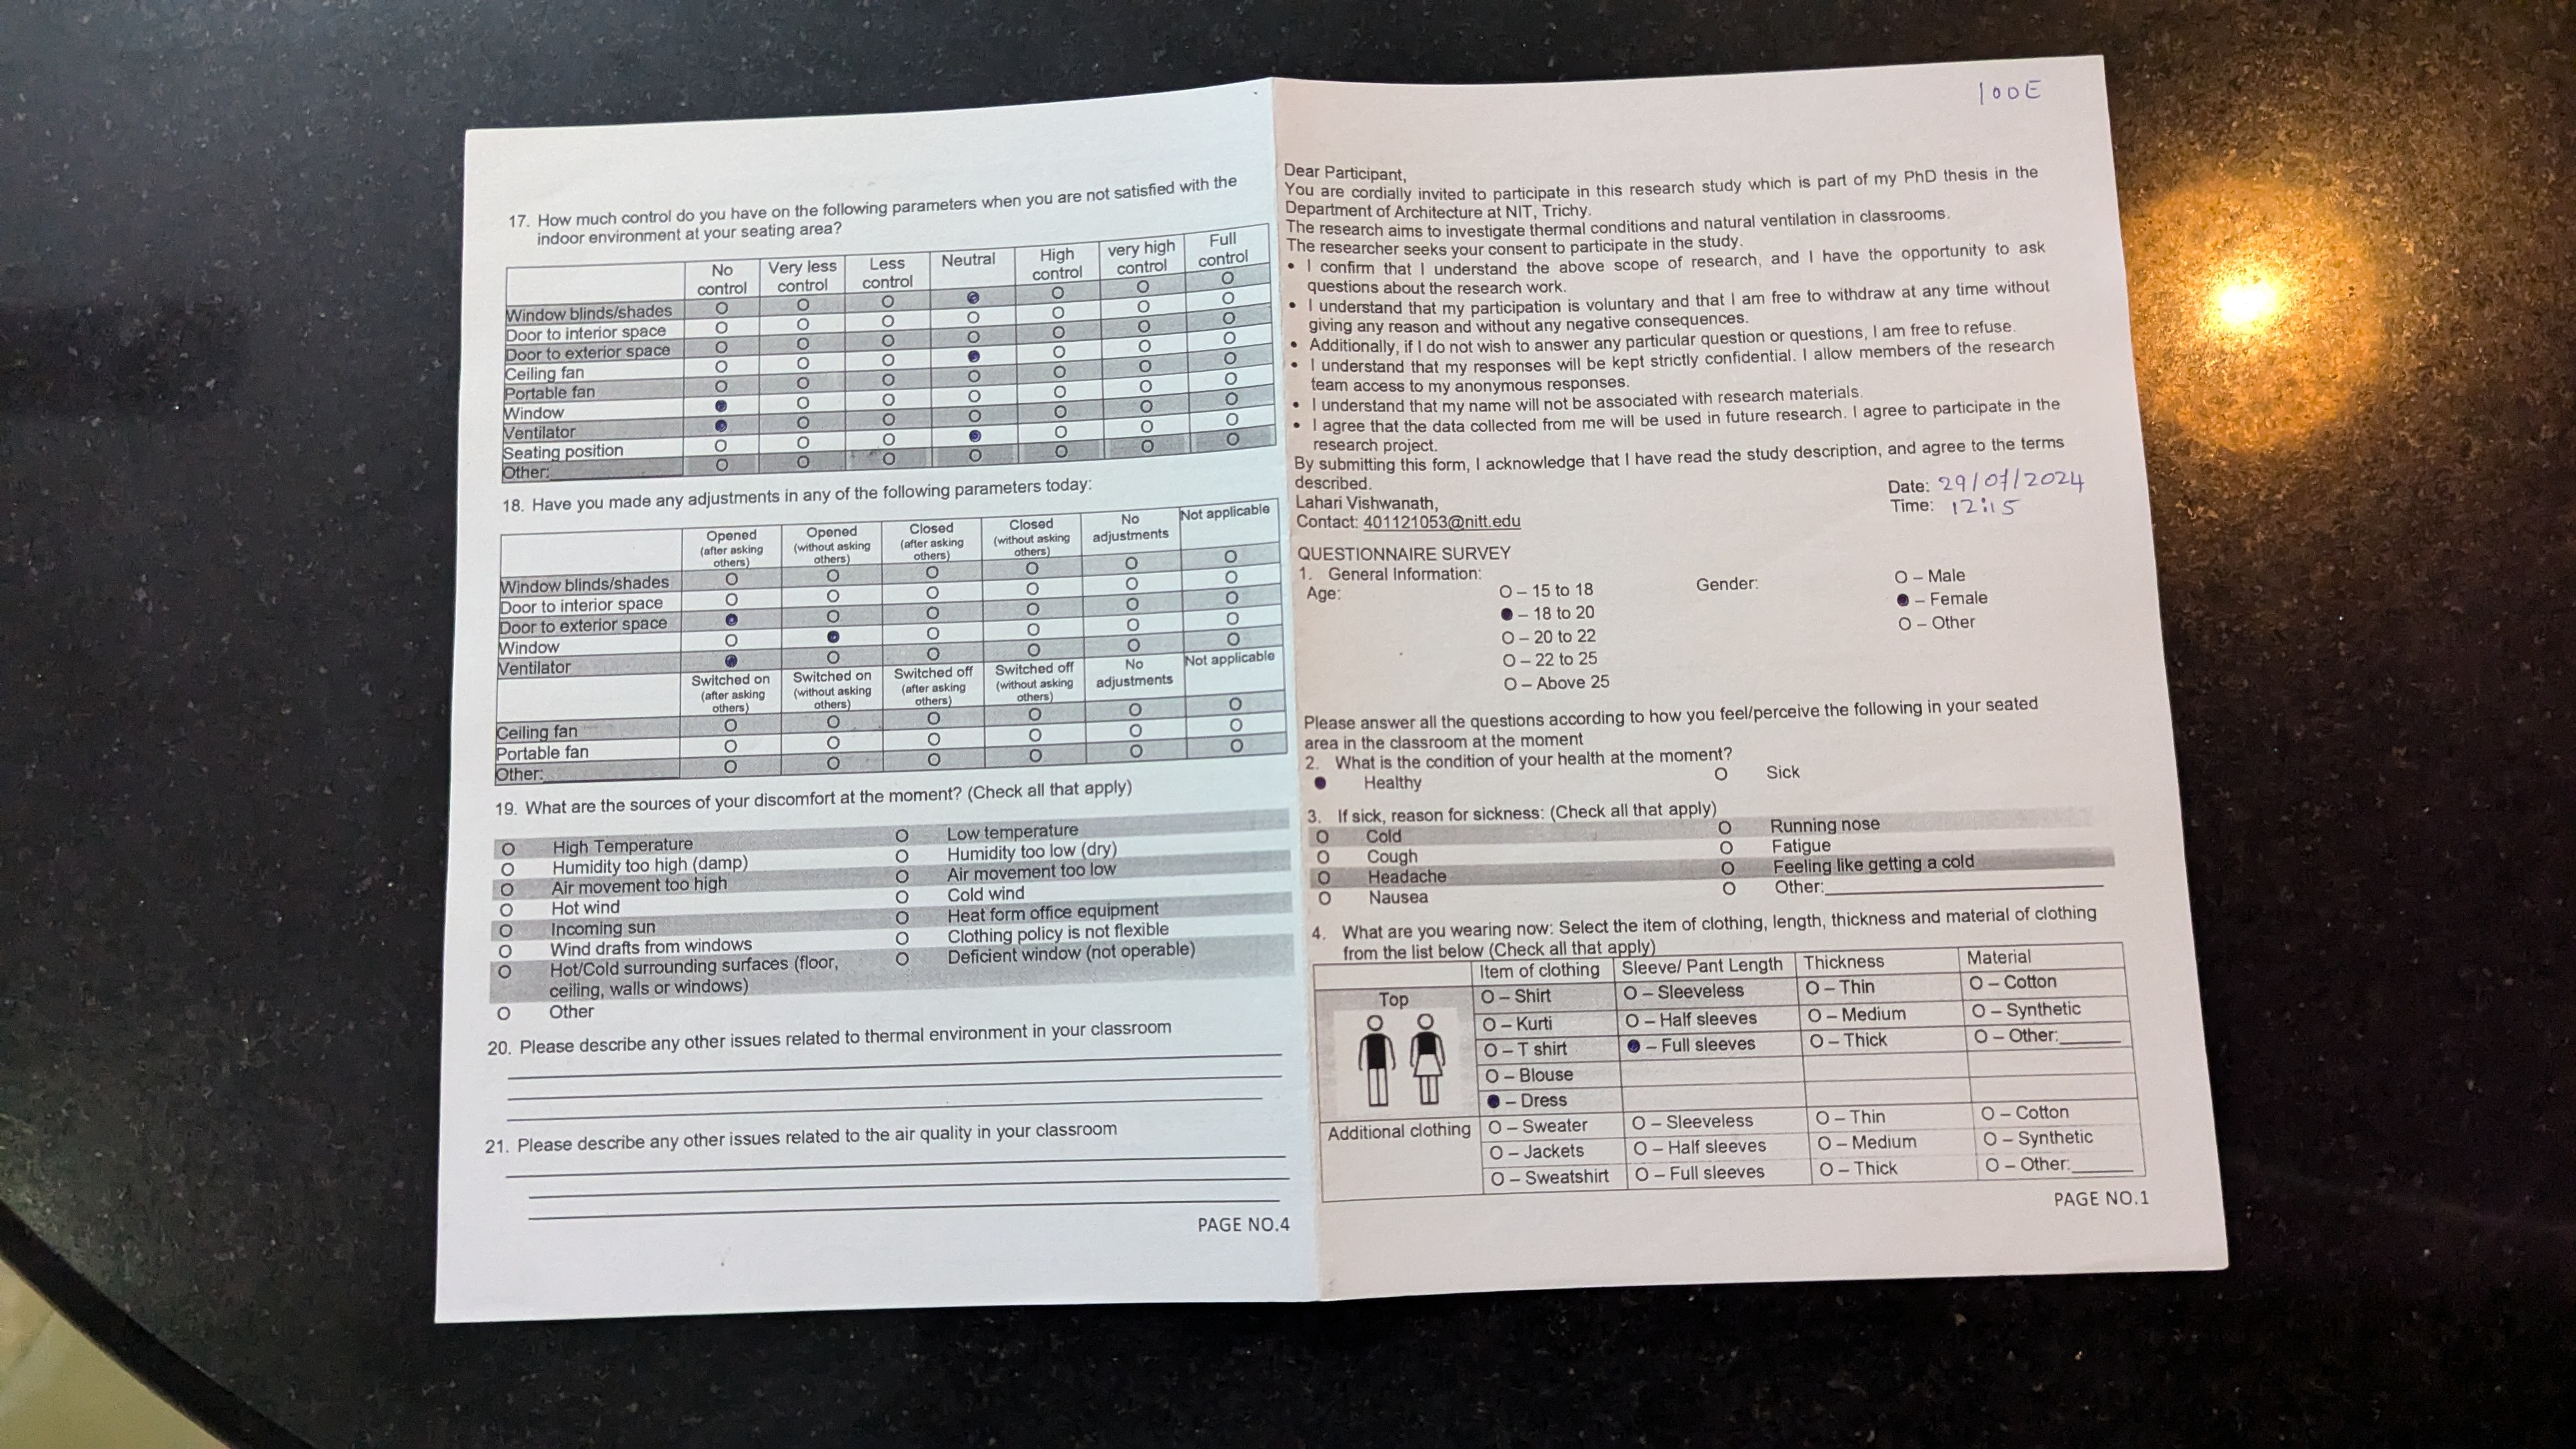 17. How much control do you have on the following parameters when you are not satisfied with the
indoor environment at your seating area?
No control Very less control Less control Neutral High control very high control Full control
Window blinds/shades O O O ● O O O
Door to interior space O O O O O O O
Door to exterior space O O O O O O O
Ceiling fan O O O ● O O O
Portable fan O O O O O O O
Window ● O O O O O O
Ventilator ● O O O O O O
Seating position O O O ● O O O
Other: O O O O O O O
18. Have you made any adjustments in any of the following parameters today:
Opened (after asking others) Opened (without asking others) Closed (after asking others) Closed (without asking others) No adjustments Not applicable
Window blinds/shades O O O O O O
Door to interior space O O O O O O
Door to exterior space ● O O O O O
Window O ● O O O O
Ventilator ● O O O O O
Switched on (after asking others) Switched on (without asking others) Switched off (after asking others) Switched off (without asking others) No adjustments Not applicable
Ceiling fan O O O O O O
Portable fan O O O O O O
Other: O O O O O O
19. What are the sources of your discomfort at the moment? (Check all that apply)
O High Temperature O Low temperature
O Humidity too high (damp) O Humidity too low (dry)
O Air movement too high O Air movement too low
O Hot wind O Cold wind
O Incoming sun O Heat form office equipment
O Wind drafts from windows O Clothing policy is not flexible
O Hot/Cold surrounding surfaces (floor, O Deficient window (not operable)
ceiling, walls or windows)
O Other
20. Please describe any other issues related to thermal environment in your classroom
21. Please describe any other issues related to the air quality in your classroom
PAGE NO.4
100E
Dear Participant,
You are cordially invited to participate in this research study which is part of my PhD thesis in the
Department of Architecture at NIT, Trichy.
The research aims to investigate thermal conditions and natural ventilation in classrooms.
The researcher seeks your consent to participate in the study.
• I confirm that I understand the above scope of research, and I have the opportunity to ask
questions about the research work.
• I understand that my participation is voluntary and that I am free to withdraw at any time without
giving any reason and without any negative consequences.
• Additionally, if I do not wish to answer any particular question or questions, I am free to refuse.
• I understand that my responses will be kept strictly confidential. I allow members of the research
team access to my anonymous responses.
• I understand that my name will not be associated with research materials.
• I agree that the data collected from me will be used in future research. I agree to participate in the
research project.
By submitting this form, I acknowledge that I have read the study description, and agree to the terms
described.
Lahari Vishwanath,
Contact: 401121053@nitt.edu
Date: 29/07/2024
Time: 12:15
QUESTIONNAIRE SURVEY
1. General Information:
Age: O – 15 to 18 Gender: O – Male
● – 18 to 20 ● – Female
O – 20 to 22 O – Other
O – 22 to 25
O – Above 25
Please answer all the questions according to how you feel/perceive the following in your seated
area in the classroom at the moment
2. What is the condition of your health at the moment?
● Healthy O Sick
3. If sick, reason for sickness: (Check all that apply)
O Cold O Running nose
O Cough O Fatigue
O Headache O Feeling like getting a cold
O Nausea O Other:
4. What are you wearing now: Select the item of clothing, length, thickness and material of clothing
from the list below (Check all that apply)
Item of clothing Sleeve/ Pant Length Thickness Material
Top O – Shirt O – Sleeveless O – Thin O – Cotton
O – Kurti O – Half sleeves O – Medium O – Synthetic
O – T shirt ● – Full sleeves O – Thick O – Other:
O – Blouse
● – Dress
Additional clothing O – Sweater O – Sleeveless O – Thin O – Cotton
O – Jackets O – Half sleeves O – Medium O – Synthetic
O – Sweatshirt O – Full sleeves O – Thick O – Other:
PAGE NO.1